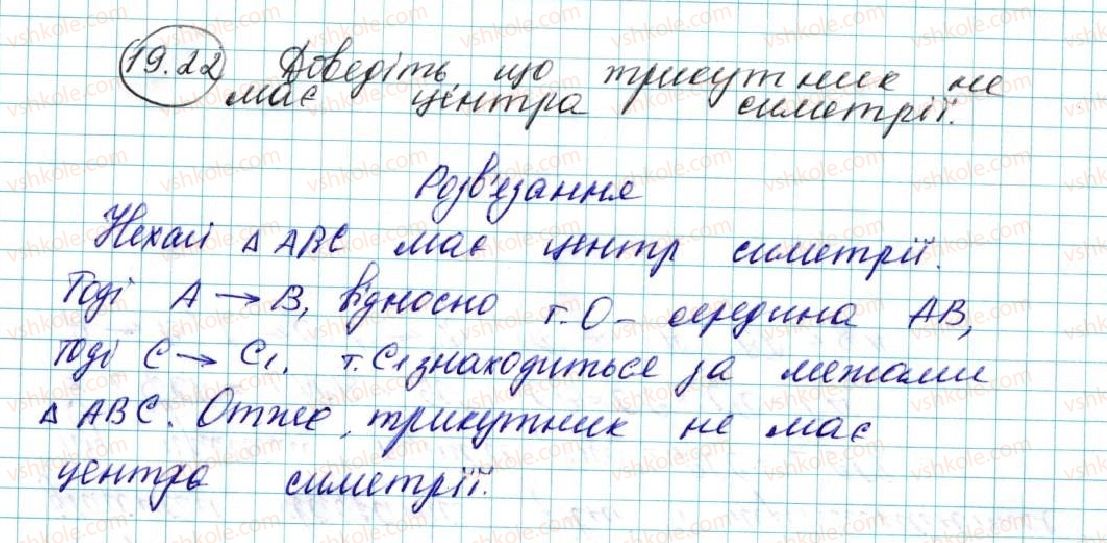 19.22 Доведіть, що трикутник не
має центра симетрії.
Розв'язання
Нехай Δ ABC має центр симетрії.
Тоді A → B, відносно т. O – середина AB,
тоді C → C₁. т. C₁ знаходиться за межами
Δ ABC. Отже, трикутник не має
центра симетрії.